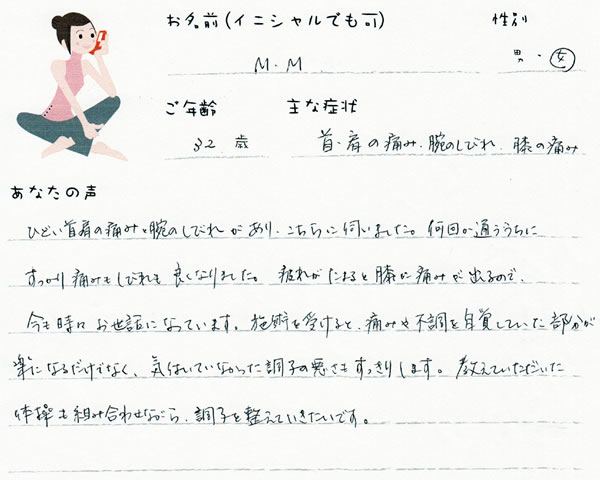 お名前(イニシャルでも可) 性別
M.M 男・女
ご年齢 主な症状
32歳 首・肩の痛み、腕のしびれ、膝の痛み
あなたの声
ひどい首肩の痛みと腕のしびれがあり、こちらに伺いました。何回か通ううちに
すっかり痛みもしびれも良くなりました。疲れがたまると膝が痛みが出るので、
今も時々お世話になっています。施術を受けると、痛みや不調を自覚していた部分が
楽になるだけでなく、気付いていなかった調子の悪さもすっきりします。教えていただいた
体操も組み合わせながら、調子を整えていきたいです。